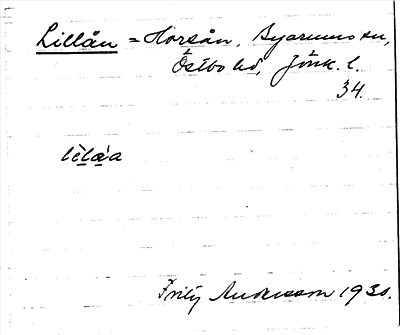 Lillån = Horsån, Byarums sn,
Östbo hd, Jönk. l.
34.
lìlaa
Fritz Andersson 1930.